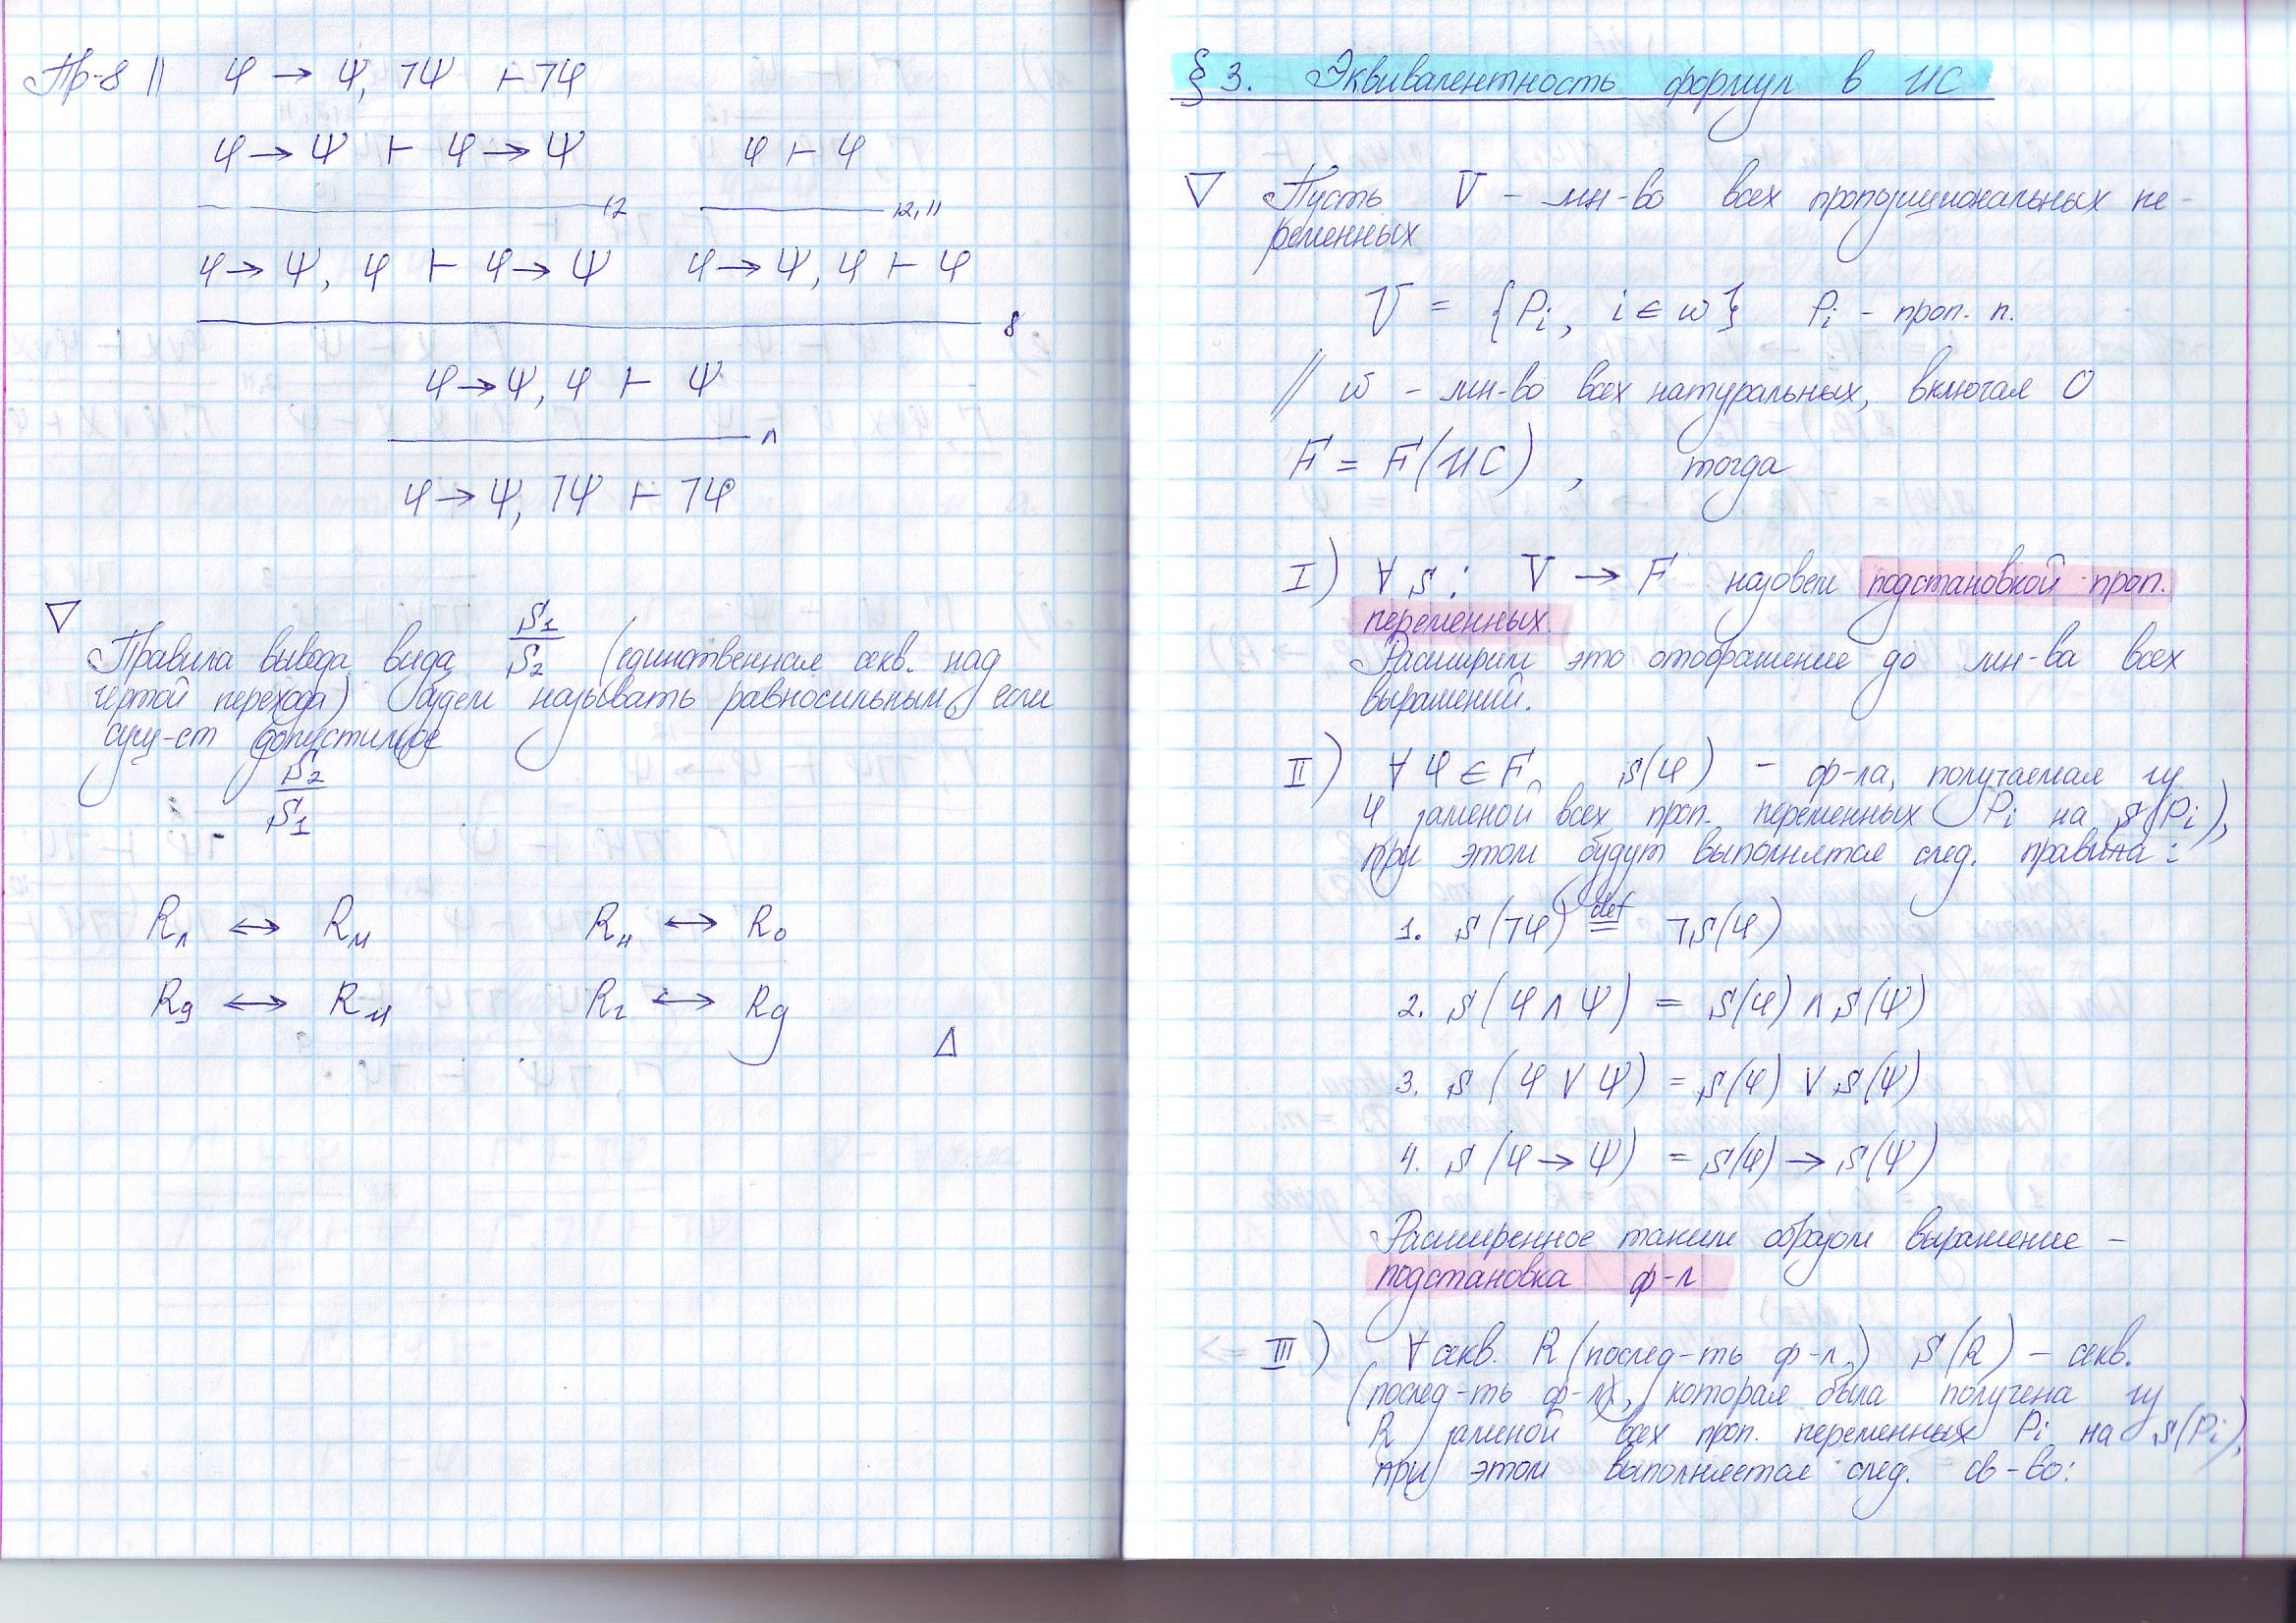 Пр-8 || φ → ψ, ¬ψ ⊢ ¬φ
φ → ψ ⊢ φ → ψ φ ⊢ φ
12 12, 11
φ → ψ, φ ⊢ φ → ψ φ → ψ, φ ⊢ φ
8
φ → ψ, φ ⊢ ψ
л
φ → ψ, ¬ψ ⊢ ¬φ
▽
Правила вывода вида S₁/S₂ (единственная секв. над
чертой перехода) будем называть равносильным, если
сущ-ет допустимое
S₂/S₁
Rл ↔ Rм Rн ↔ Rо
R ↔ Rм Rг ↔ Rд
△
§ 3. Эквивалентность формул в ИС
▽ Пусть V – мн-во всех пропозициональных пе-
ременных
V = {Pi, i ∈ ω} Pi – проп. п.
// ω – мн-во всех натуральных, включая 0
F = F(ИС), тогда
I) ∀ s : V → F назовем подстановкой проп.
переменных.
Расширим это отображение до мн-ва всех
выражений.
II) ∀ φ ∈ F, s(φ) – ф-ла, получаемая из
φ заменой всех проп. переменных Pi на s(Pi),
при этом будут выполнятся след. правила:
1. s(¬φ) def= ¬s(φ)
2. s(φ ∧ ψ) = s(φ) ∧ s(ψ)
3. s(φ ∨ ψ) = s(φ) ∨ s(ψ)
4. s(φ → ψ) = s(φ) → s(ψ)
Расширенное таким образом выражение –
подстановка ф-л
III) ∀ секв. R (послед-ть ф-л,) S(R) – секв.
(послед-ть ф-л), которая была получена из
R заменой всех проп. переменных Pi на s(Pi),
при этом выполняется след. св-во: